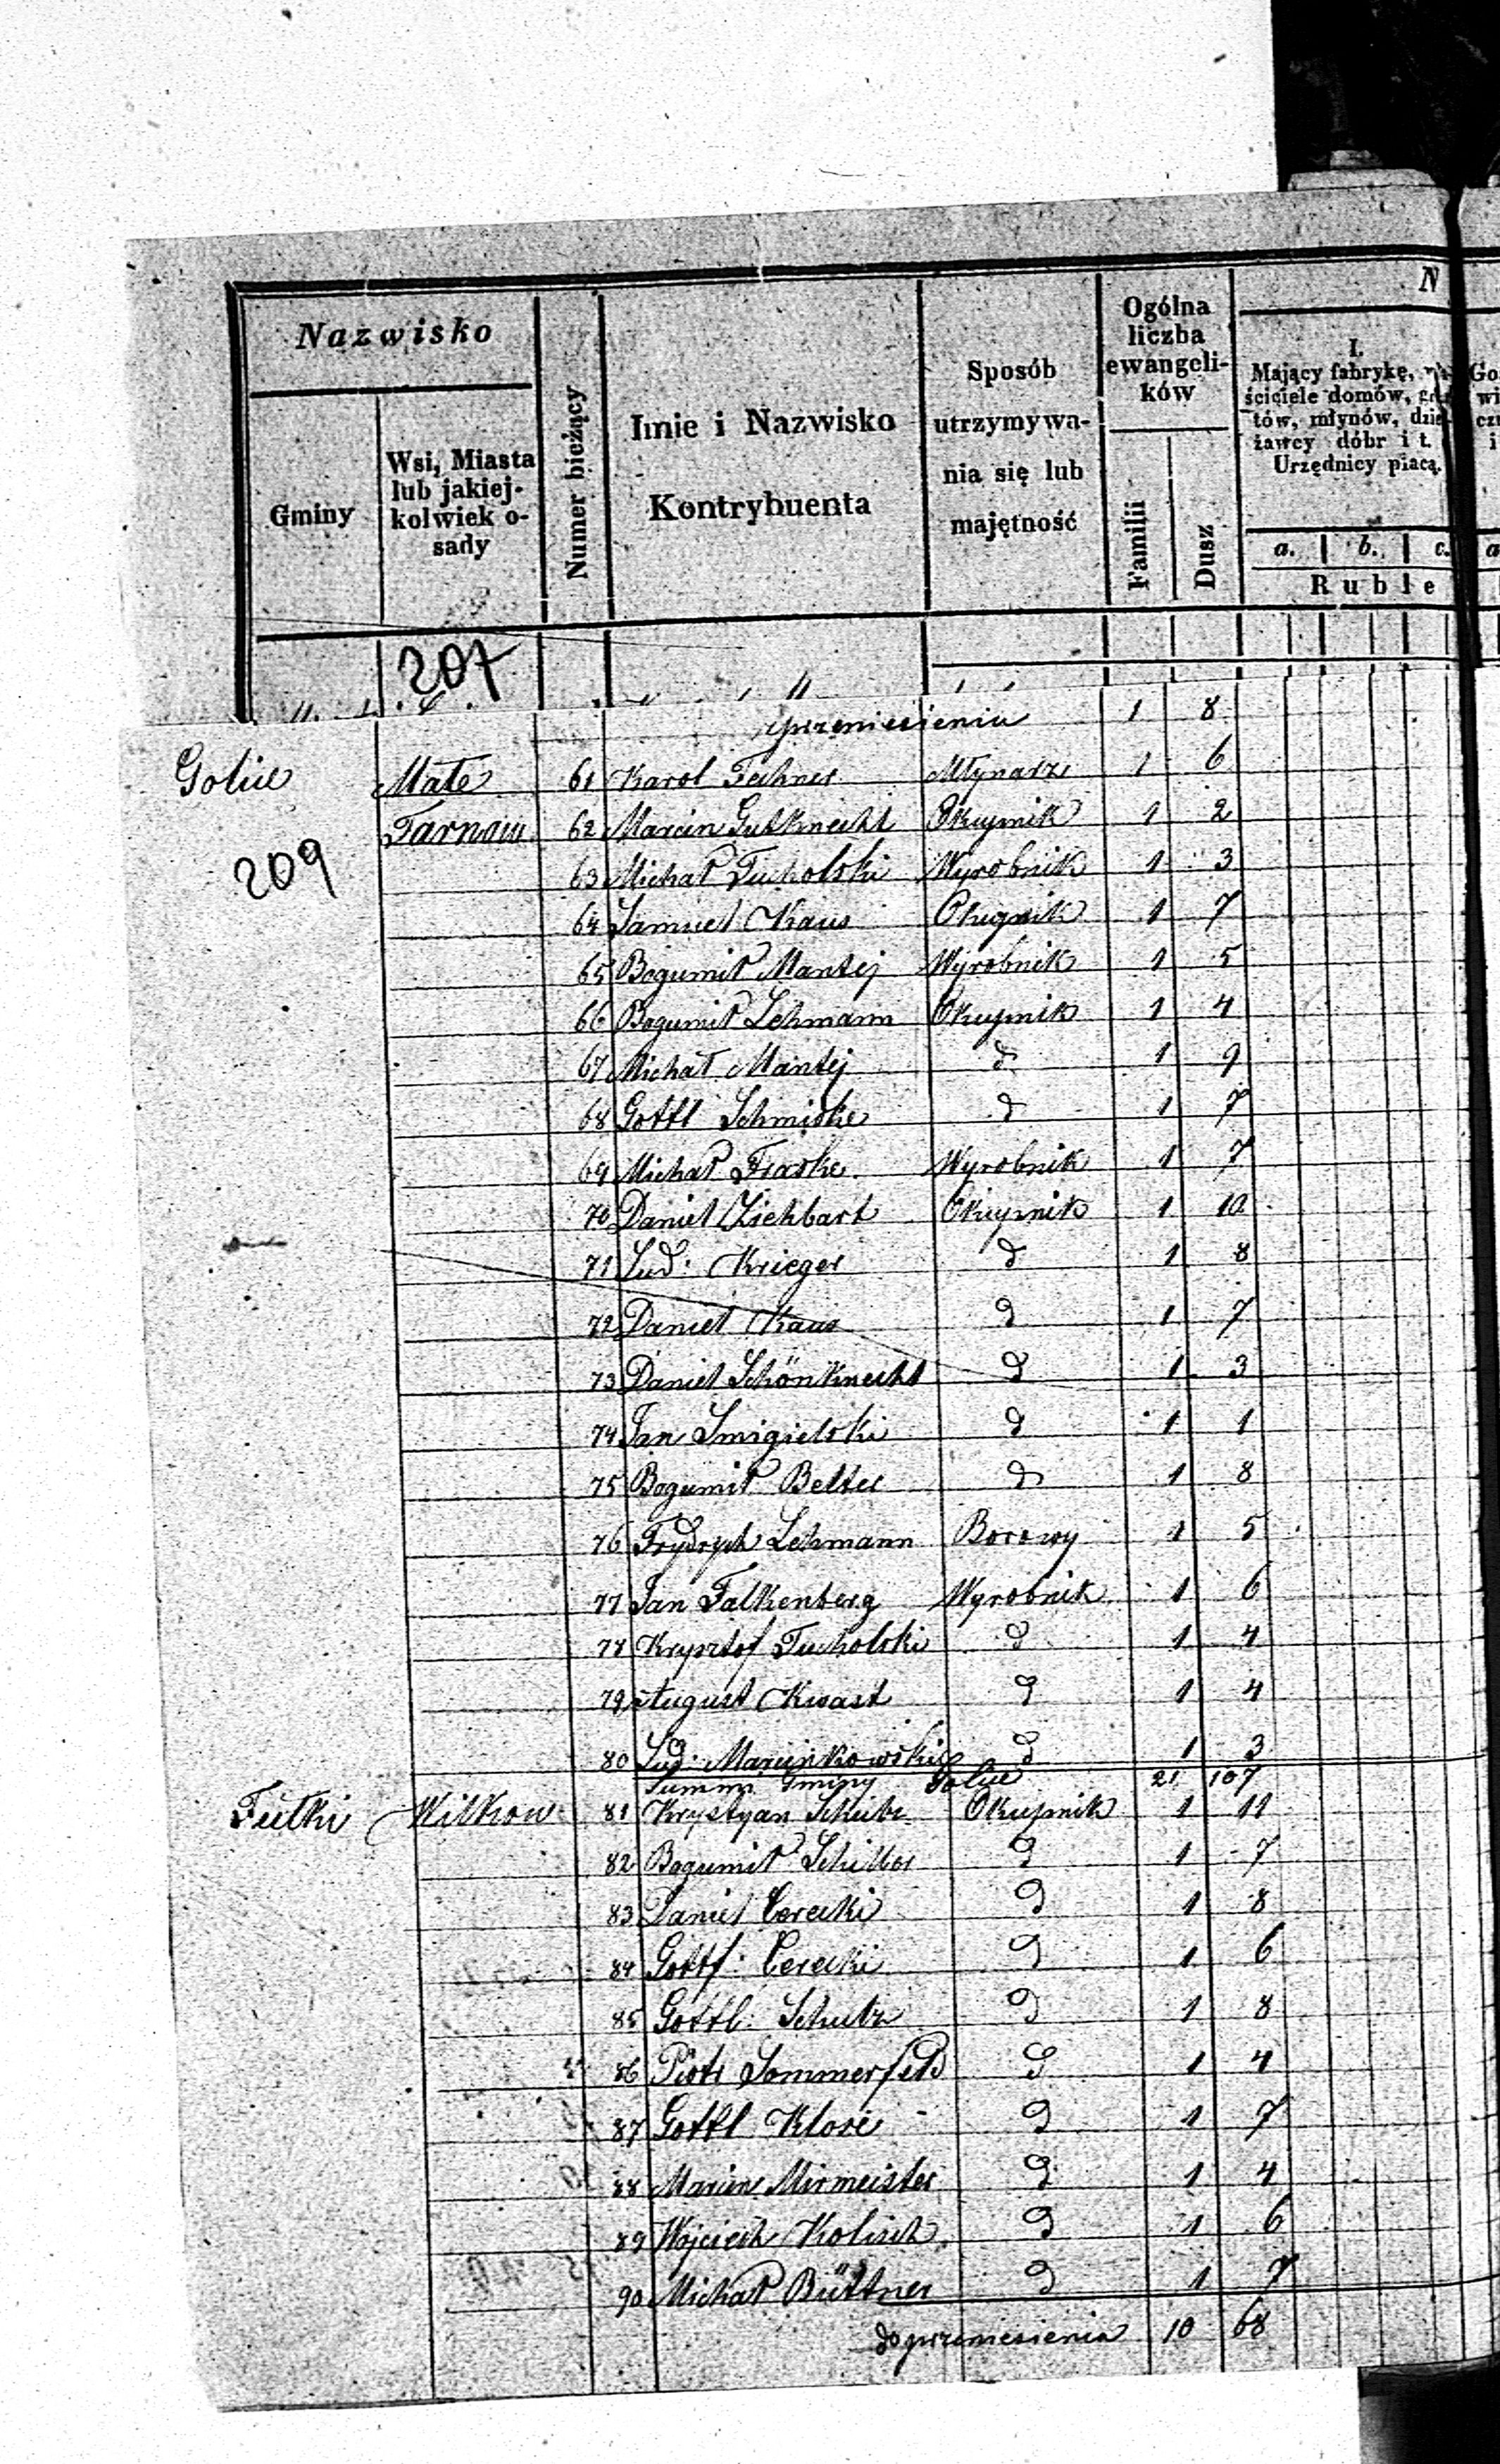 Nazwisko
Gminy
Wsi, Miasta
lub jakiej-
kolwiek o-
sady
Numer bieżący
Imie i Nazwisko
Kontrybuenta
Sposób
utrzymywa-
nia się lub
majętność
Ogólna
liczba
ewangeli-
ków
Familii
Dusz
N
I.
Mający fabrykę,
ściciele domów,
tów, młynów,
żawcy dóbr i t.
Urzędnicy płacą.
a. b. c.
Ruble
207
przeniesieniu 1 8
Golice Małe 61 Karol Fechner Młynarz 1 6
Tarnow 62 Marcin Gutknecht Okupnik 1 2
209
63 Michał Tucholski Wyrobnik 1 3
64 Samuel Kaus Okupnik 1 7
65 Bogumił Mantej Wyrobnik 1 5
66 Bogumił Lehmann Okupnik 1 4
67 Michał Mantej d 1 9
68 Gottl Schmidke d 1 7
69 Michał Fraske Wyrobnik 1 7
70 Daniel Zichbart Okupnik 1 10
71 Lud: Krieger d 1 8
72 Daniel Kaus d 1 7
73 Daniel Schönknecht d 1 3
74 Jan Smigielski d 1 1
75 Bogumił Belter d 1 8
76 Frydrych Lehmann Borowy 1 5
77 Jan Falkenberg Wyrobnik 1 6
78 Krysztof Tucholski d 1 4
79 August Kwast d 1 4
80 Lud: Marcinkowski d 1 3
Summa Gminy Golice 21 107
Tutki Wilkow 81 Krystyan Schulz Okupnik 1 11
82 Bogumił Schiller d 1 7
83 Daniel Cerecki d 1 8
84 Gottf: Cerecki d 1 6
85 Gottl: Schulz d 1 8
86 Piotr Sommerfeld d 1 4
87 Gottl Klose d 1 7
88 Marcin Mirmeister d 1 4
89 Wojciech Kolisch d 1 6
90 Michał Büttner d 1 7
do przeniesienia 10 68